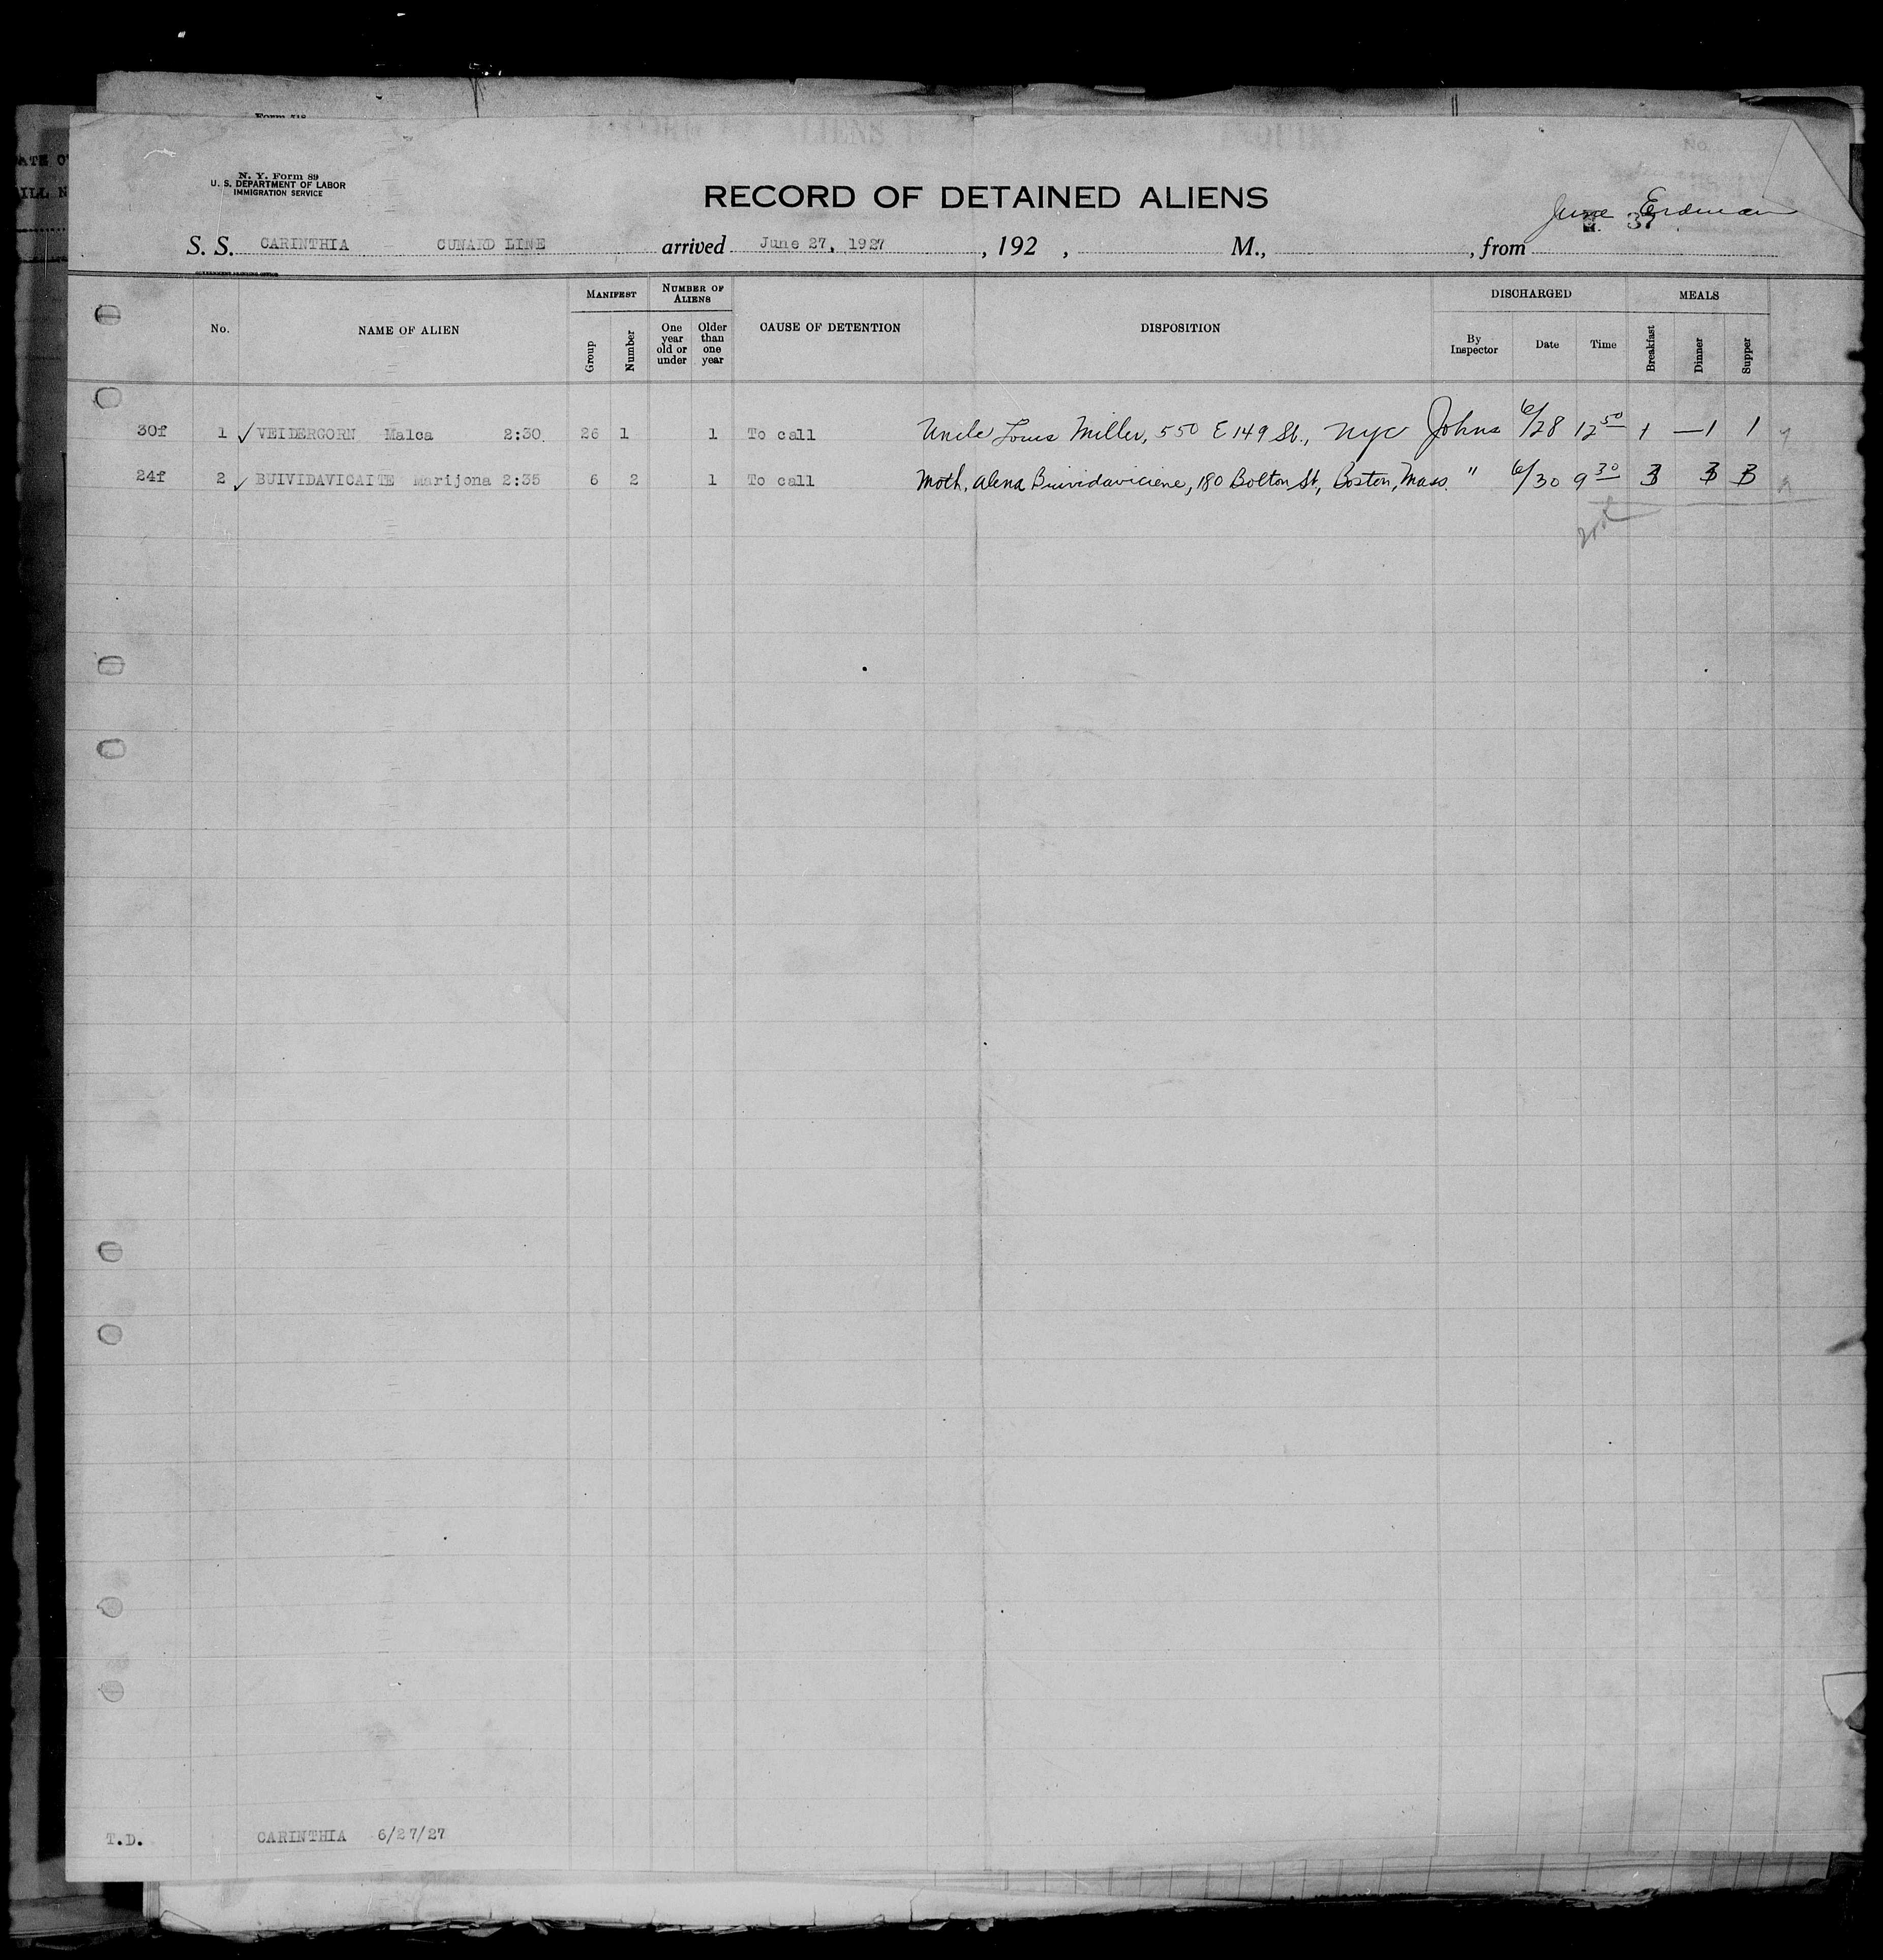 Form 518
N. Y. Form 89
U. S. DEPARTMENT OF LABOR
IMMIGRATION SERVICE
RECORD OF DETAINED ALIENS
Erdman
37
S. S. CARINTHIA CUNARD LINE arrived June 27, 1927, 192 , M., , from
GOVERNMENT PRINTING OFFICE
No. NAME OF ALIEN MANIFEST Group Number NUMBER OF ALIENS One year old or under Older than one year CAUSE OF DETENTION DISPOSITION DISCHARGED By Inspector Date Time MEALS Breakfast Dinner Supper
30f 1 ✓ VEIDERGORN Malca 2:30 26 1 1 To call Uncle Louis Miller, 550 E 149 St., NYC Johns 6/28 12 50 1 — 1 1
24f 2 ✓ BUIVIDAVICAITE Marijona 2:35 6 2 1 To call Moth, Alena Buividaviciene, 180 Bolton St, Boston, Mass. " 6/30 9 30 3 3 3
T.D. CARINTHIA 6/27/27